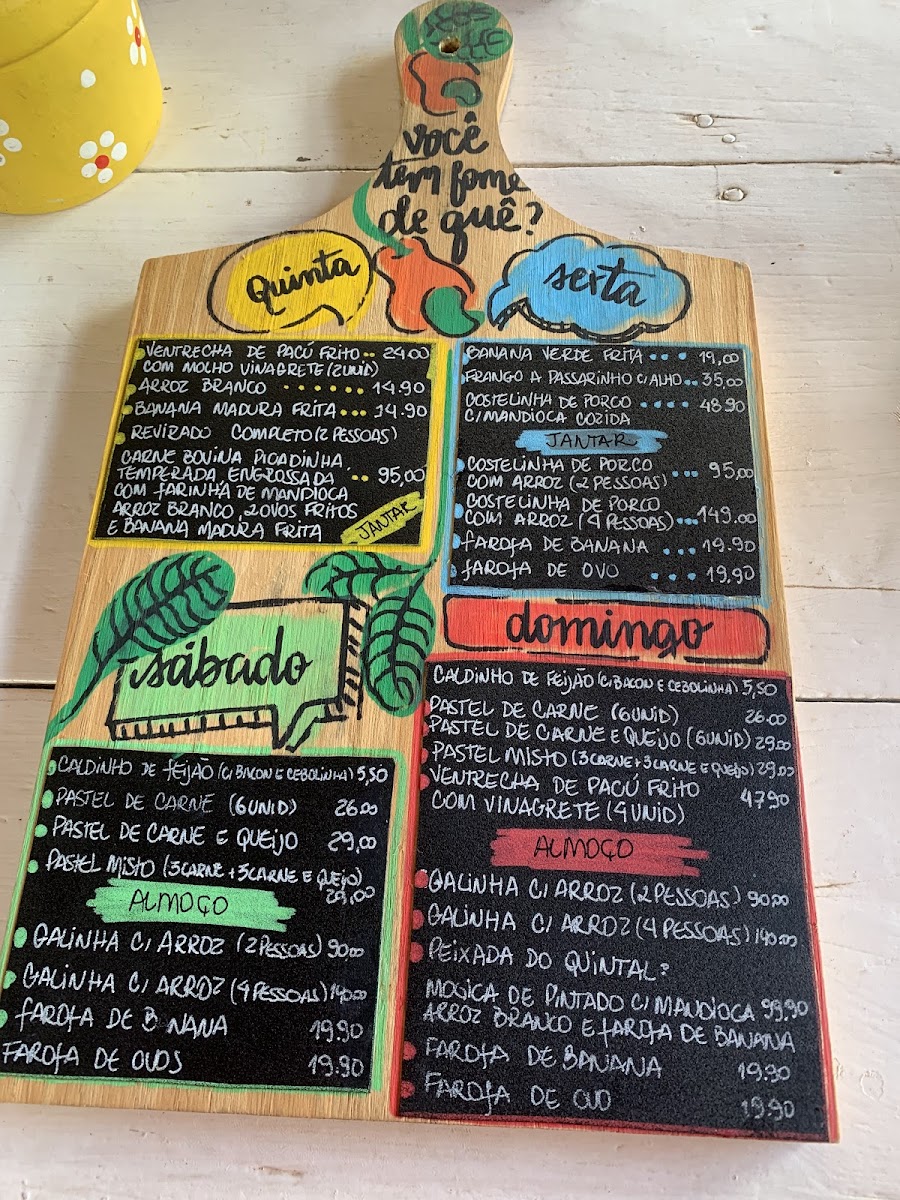 você
tem fome
de quê?
Quinta
VENTRECHA DE PACÚ FRITO .. 24.00
COM MOLHO VINAGRETE (2UNID)
ARROZ BRANCO ...... 14.90
BANANA MADURA FRITA ... 14.90
REVIZADO COMPLETO (2 PESSOAS)
CARNE BOVINA PICADINHA,
TEMPERADA, ENGROSSADA .. 95,00
COM FARINHA DE MANDIOCA
ARROZ BRANCO, 2 OVOS FRITOS
E BANANA MADURA FRITA
JANTAR
sexta
BANANA VERDE FRITA ... 19,00
FRANGO A PASSARINHO C/ALHO .. 35,00
COSTELINHA DE PORCO .... 48.90
C/MANDIOCA COZIDA
JANTAR
COSTELINHA DE PORCO ... 95,00
COM ARROZ (2 PESSOAS)
COSTELINHA DE PORCO
COM ARROZ (4 PESSOAS) ... 149.00
FAROFA DE BANANA ... 19.90
FAROFA DE OVO .... 19,90
sábado
CALDINHO DE FEIJÃO (C/ BACON E CEBOLINHA) 5,50
PASTEL DE CARNE (6UNID) 26.00
PASTEL DE CARNE E QUEIJO 29,00
PASTEL MISTO (3CARNE + 3CARNE E QUEIJO)
29,00
ALMOÇO
GALINHA C/ ARROZ (2 PESSOAS) 90.00
GALINHA C/ ARROZ (4 PESSOAS) 140.00
FAROFA DE B NANA 19.90
FAROFA DE OVOS 19.90
domingo
CALDINHO DE FEIJÃO (C/BACON E CEBOLINHA) 5,50
PASTEL DE CARNE (6UNID) 26.00
PASTEL DE CARNE E QUEIJO (6UNID) 29.00
PASTEL MISTO (3CARNE + 3CARNE E QUEIJO) 29.00
VENTRECHA DE PACÚ FRITO 47.90
COM VINAGRETE (4UNID)
ALMOÇO
GALINHA C/ ARROZ (2 PESSOAS) 90.00
GALINHA C/ ARROZ (4 PESSOAS) 140.00
PEIXADA DO QUINTAL:
MOGICA DE PINTADO C/ MANDIOCA 99.90
ARROZ BRANCO E FAROFA DE BANANA
FAROFA DE BANANA 19.90
FAROFA DE OVO 19.90